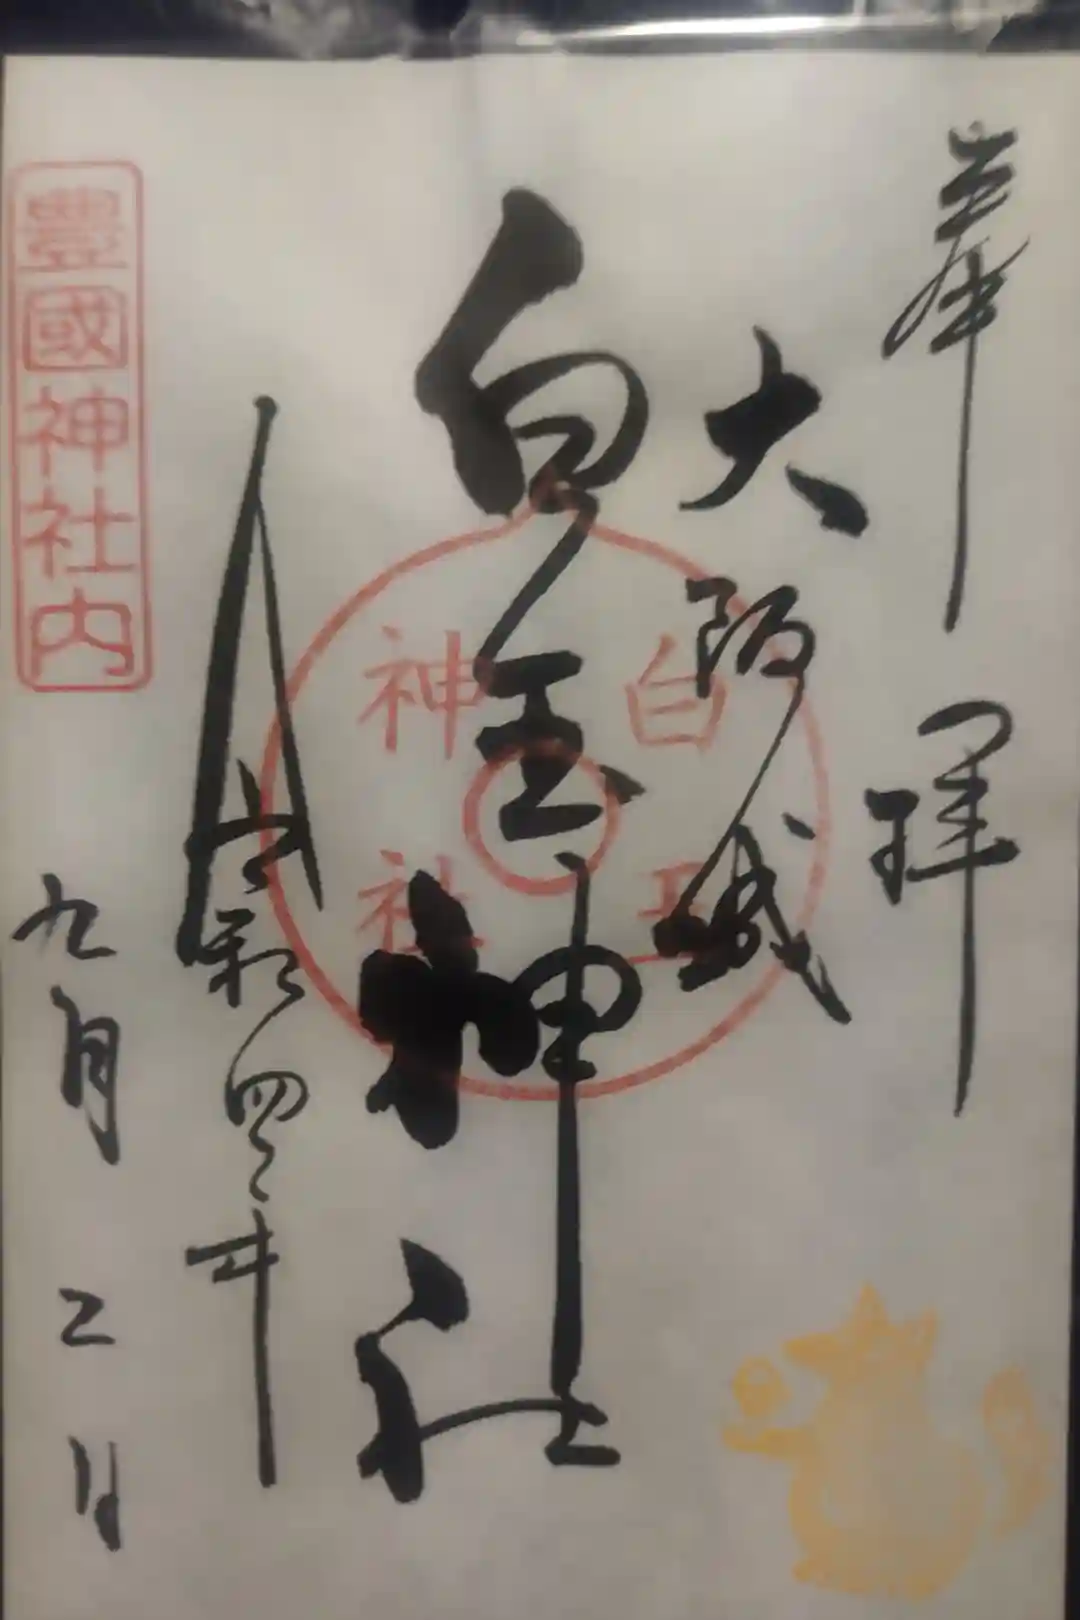 奉拝
大阪城
白玉神社
白玉
神社
令和四年
九月二日
豊國神社内